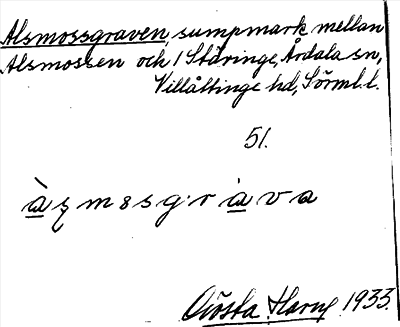 Alsmossgraven, sumpmark mellan
Alsmossen och 1 Stäringe, Årdala sn,
Villåttinge hd, Sörml. l.
51.
àzmɷsg·r àva
Gösta Harng 1933.